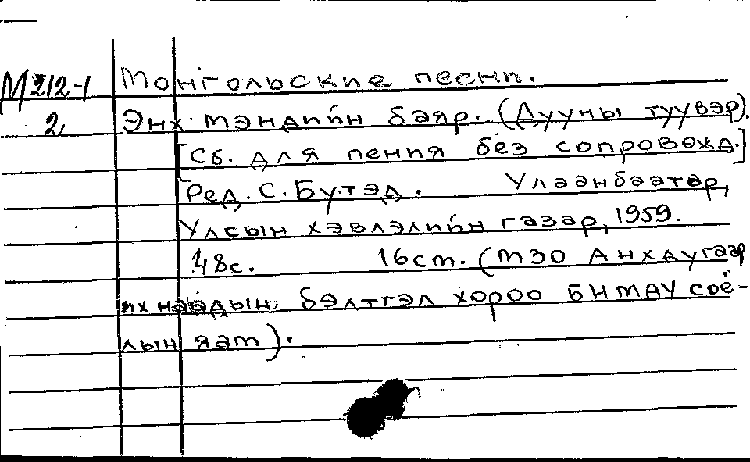 М212-1 Монгольские песни.
2. Энх мэндийн баяр. (Дууны түүвэр).
[Сб. для пения без сопровожд.]
Ред. С. Бутэд. Улаанбаатар,
Улсын хэвлэлийн газар, 1959.
48с. 16cm. (МЗО Анхдугаар
их наадын бэлтгэл хороо БНМАУ соё-
лын яам).